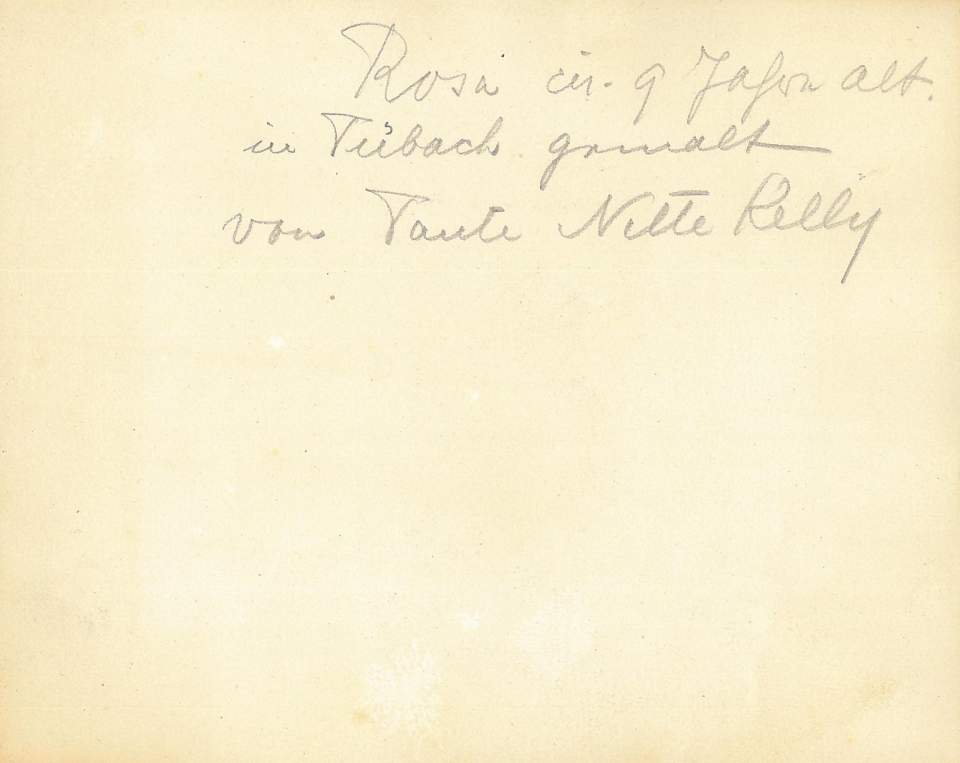 Rosa cir. 9 Jahre alt.
in Tübach gemalt
von Tante Nette Kelly